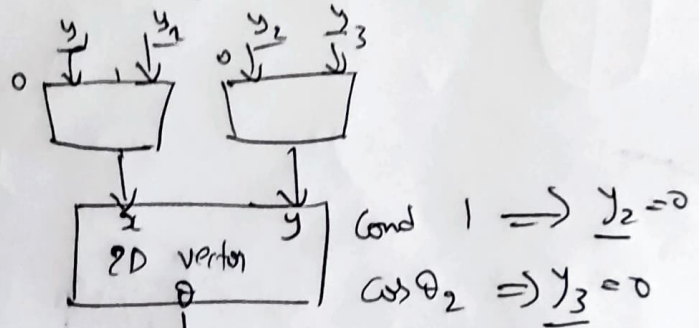 y₁ y₂ y₂ y₃
0 1 0
x y
2D vector
θ
Cond 1 ⇒ y₂ = 0
Cos θ₂ ⇒ y₃ = 0